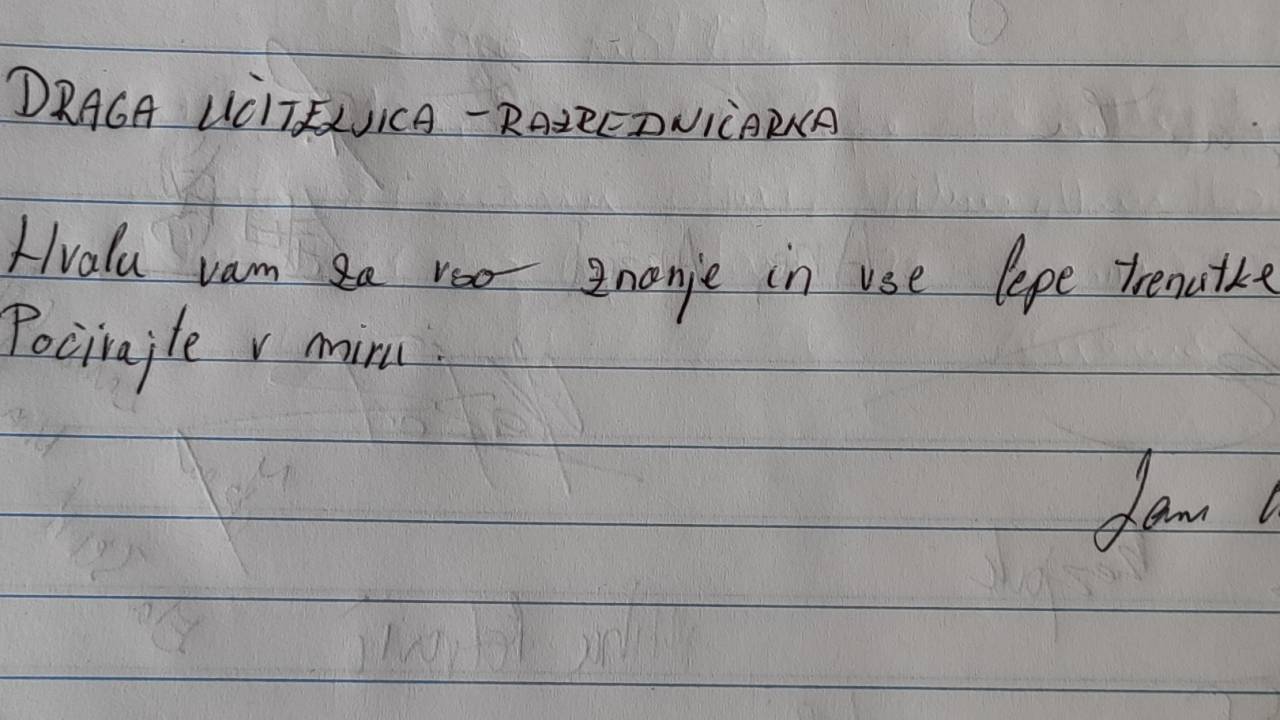 DRAGA UČITELJICA - RAZREDNIČARKA
Hvala vam za vso znanje in vse lepe trenutke
Počivajte v miru.
Jan